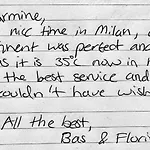 nice time in Milan,
was perfect and
s it is 35°C now in
the best service and
couldn't have wis
All the best,
Bas &